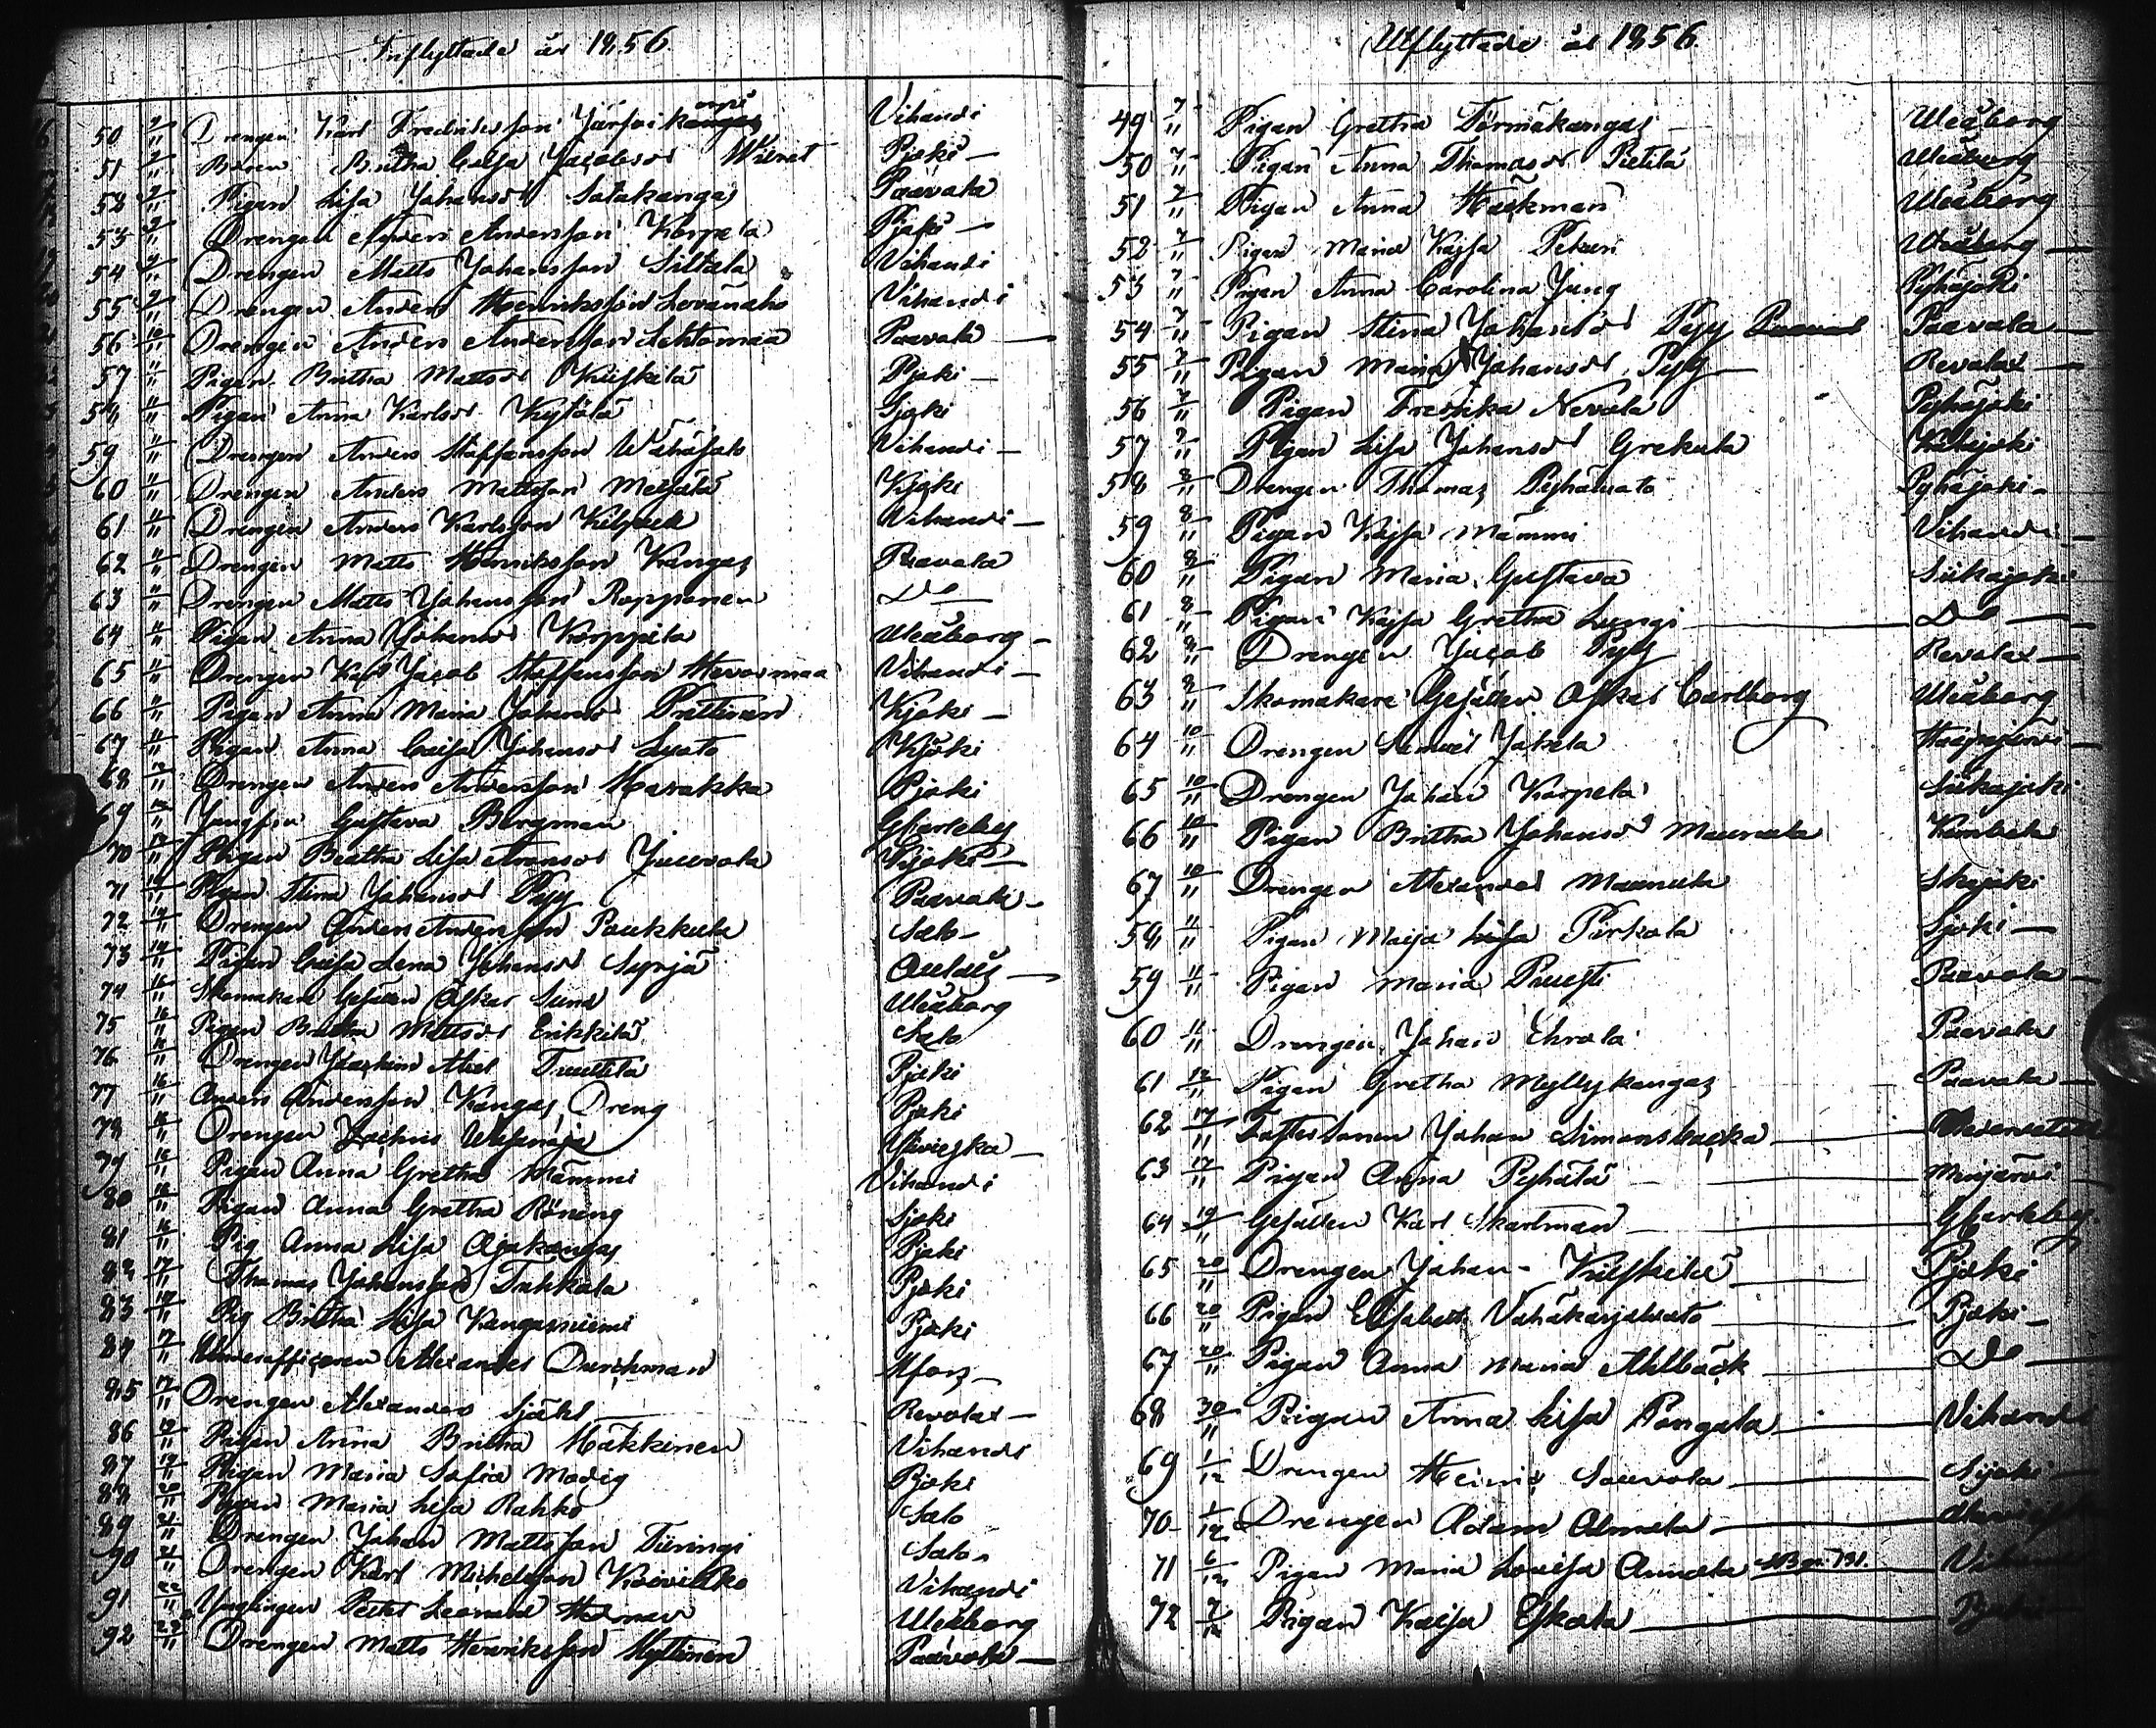 Inflyttade år 1856
50 7/11 Drengen Karl Fredriksson Järfvikangas orpi Vihandi
51 7/11 Britha Cajsa Jacobsdr Pjoki
52 7/11 Pigan Lisa Johansdr Satakangas Paavola
53 7/11 Drengen Anders Andersson Karpela Pjoki
54 Drengen Matts Johansson Siltala Vihandi
55 Drengen Anders Henriksson Levänaho Vihandi
56 10/11 Drengen Anders Andersson Lehtomaa Paavola
57 11/11 Pigan Britha Mattsdr Kiiskilä Pjoki
58 11/11 Pigan Anna Karlsdr Sjoki
59 11/11 Drengen Anders Staffansson Wähäsalo Vihandi
60 11/11 Drengen Anders Mattsson Kjoki
61 11/11 Drengen Anders Karlsson Vihandi
62 11/11 Drengen Matts Henriksson Kangas Paavola
63 11/11 Drengen Matts Johansson Ropponen Do
64 11/11 Pigan Anna Johansdr Korppila Uleåborg
65 11/11 Drengen Karl Jacob Staffansson Hevosmaa Vihandi
66 11/11 Pigan Anna Maria Johansdr Kjoki
67 11/11 Pigan Anna Caisa Johansdr Kjoki
68 12/11 Drengen Anders Andersson Harakka Pjoki
69 Jungfru Gustava Bergman Gkarleby
70 Pigan Beatha Lisa Aronsdr Juurola
71 14/11 Pigan Stina Johansdr Pyy Paavola
72 14/11 Drengen Anders Andersson Paukkula Salo
73 14/11 Pigan Caisa Lena Johansdr Syrjä
74 16/11 Skomakare Gesällen Oskar Lund Uleåborg
75 16/11 Pigan Mattsdr Erikkilä Salo
76 16/11 Drengen Joachim Abel Tuuttila Pjoki
77 16/11 Anders Andersson Kangas Dreng Pjoki
78 16/11 Drengen Ylivieska
79 16/11 Pigan Anna Gretha Mämmi Vihandi
80 16/11 Pigan Anna Gretha Röneng Sjoki
81 16/11 Pig Anna Lisa Ojakangas Pjoki
82 17/11 Thomas Johansson Tukkala Pjoki
83 17/11 Pig Britha Lisa Kangasniemi Pjoki
84 17/11 Underofficeren Alexander Durchman Hfors
85 17/11 Drengen Alexander Revolax
86 19/11 Pigan Anna Britha Häkkinen Vihandi
87 19/11 Pigan Maria Sofia Modig Pjoki
88 20/11 Pigan Maria Lisa Rahko Salo
89 21/11 Drengen Johan Mattsson Salo
90 21/11 Drengen Karl Michelsson Koivikko Vihandi
91 22/11 Ynglingen Petter Leonard Uleåborg
92 22/11 Drengen Matts Henriksson Myllinen Paavola
Utflyttade år 1856
49 7/11 Pigan Gretha Törmäkangas Uleåborg
50 7/11 Pigan Anna Thomasdr Pietilä Uleåborg
51 7/11 Pigan Anna Häckman Uleåborg
52 7/11 Pigan Maria Kajsa Pekuri Uleåborg
53 7/11 Pigan Anna Carolina Jung Pyhäjoki
54 7/11 Pigan Stina Johansdr Pyy Paavola
55 7/11 Pigan Maria Johansdr Pyy Revolax
56 7/11 Pigan Fredrika Nevala Pyhäjoki
57 7/11 Pigan Lisa Johansdr Grekula Kalajoki
58 8/11 Drengen Thomas Pyhäluoto Pyhäjoki
59 8/11 Pigan Kajsa Mämmi Vihandi
60 8/11 Pigan Maria Gustava Siikajoki
61 8/11 Pigan Kajsa Gretha Lungi Do
62 8/11 Drengen Jacob Pyy Revolax
63 8/11 Skomakare Gesällen Oskar Carlborg Uleåborg
64 10/11 Drengen Samuel Jakola Haapajärvi
65 10/11 Drengen Johan Karpela Siikajoki
66 10/11 Pigan Britha Johansdr Maunula Kimbele
67 10/11 Drengen Alexander Maunula Skajoki
58 11/11 Pigan Maija Lisa Pirkola Sjoki
59 11/11 Pigan Maria Paavola
60 11/11 Drengen Johan Ehrola Paavola
61 12/11 Pigan Gretha Myllykangas Paavola
62 17/11 Johan Simonsbacka
63 17/11 Pigan Anna Pyhälä
64 19/11 Gesällen Karl Skartman Gkarleby
65 20/11 Drengen Johan Kiiskilä Pjoki
66 20/11 Pigan Elisabeth Vähäkarjaluoto Pjoki
67 20/11 Pigan Anna Maria Ahlbäck Do
68 30/11 Pigan Anna Lisa Pongala Vihandi
69 1/12 Drengen Heinr Sauvola Sijoki
70 1/12 Drengen Adam Annala
71 6/12 Pigan Maria Lovisa Annala Vihandi
72 7/12 Pigan Kaisa Eskola Pjoki